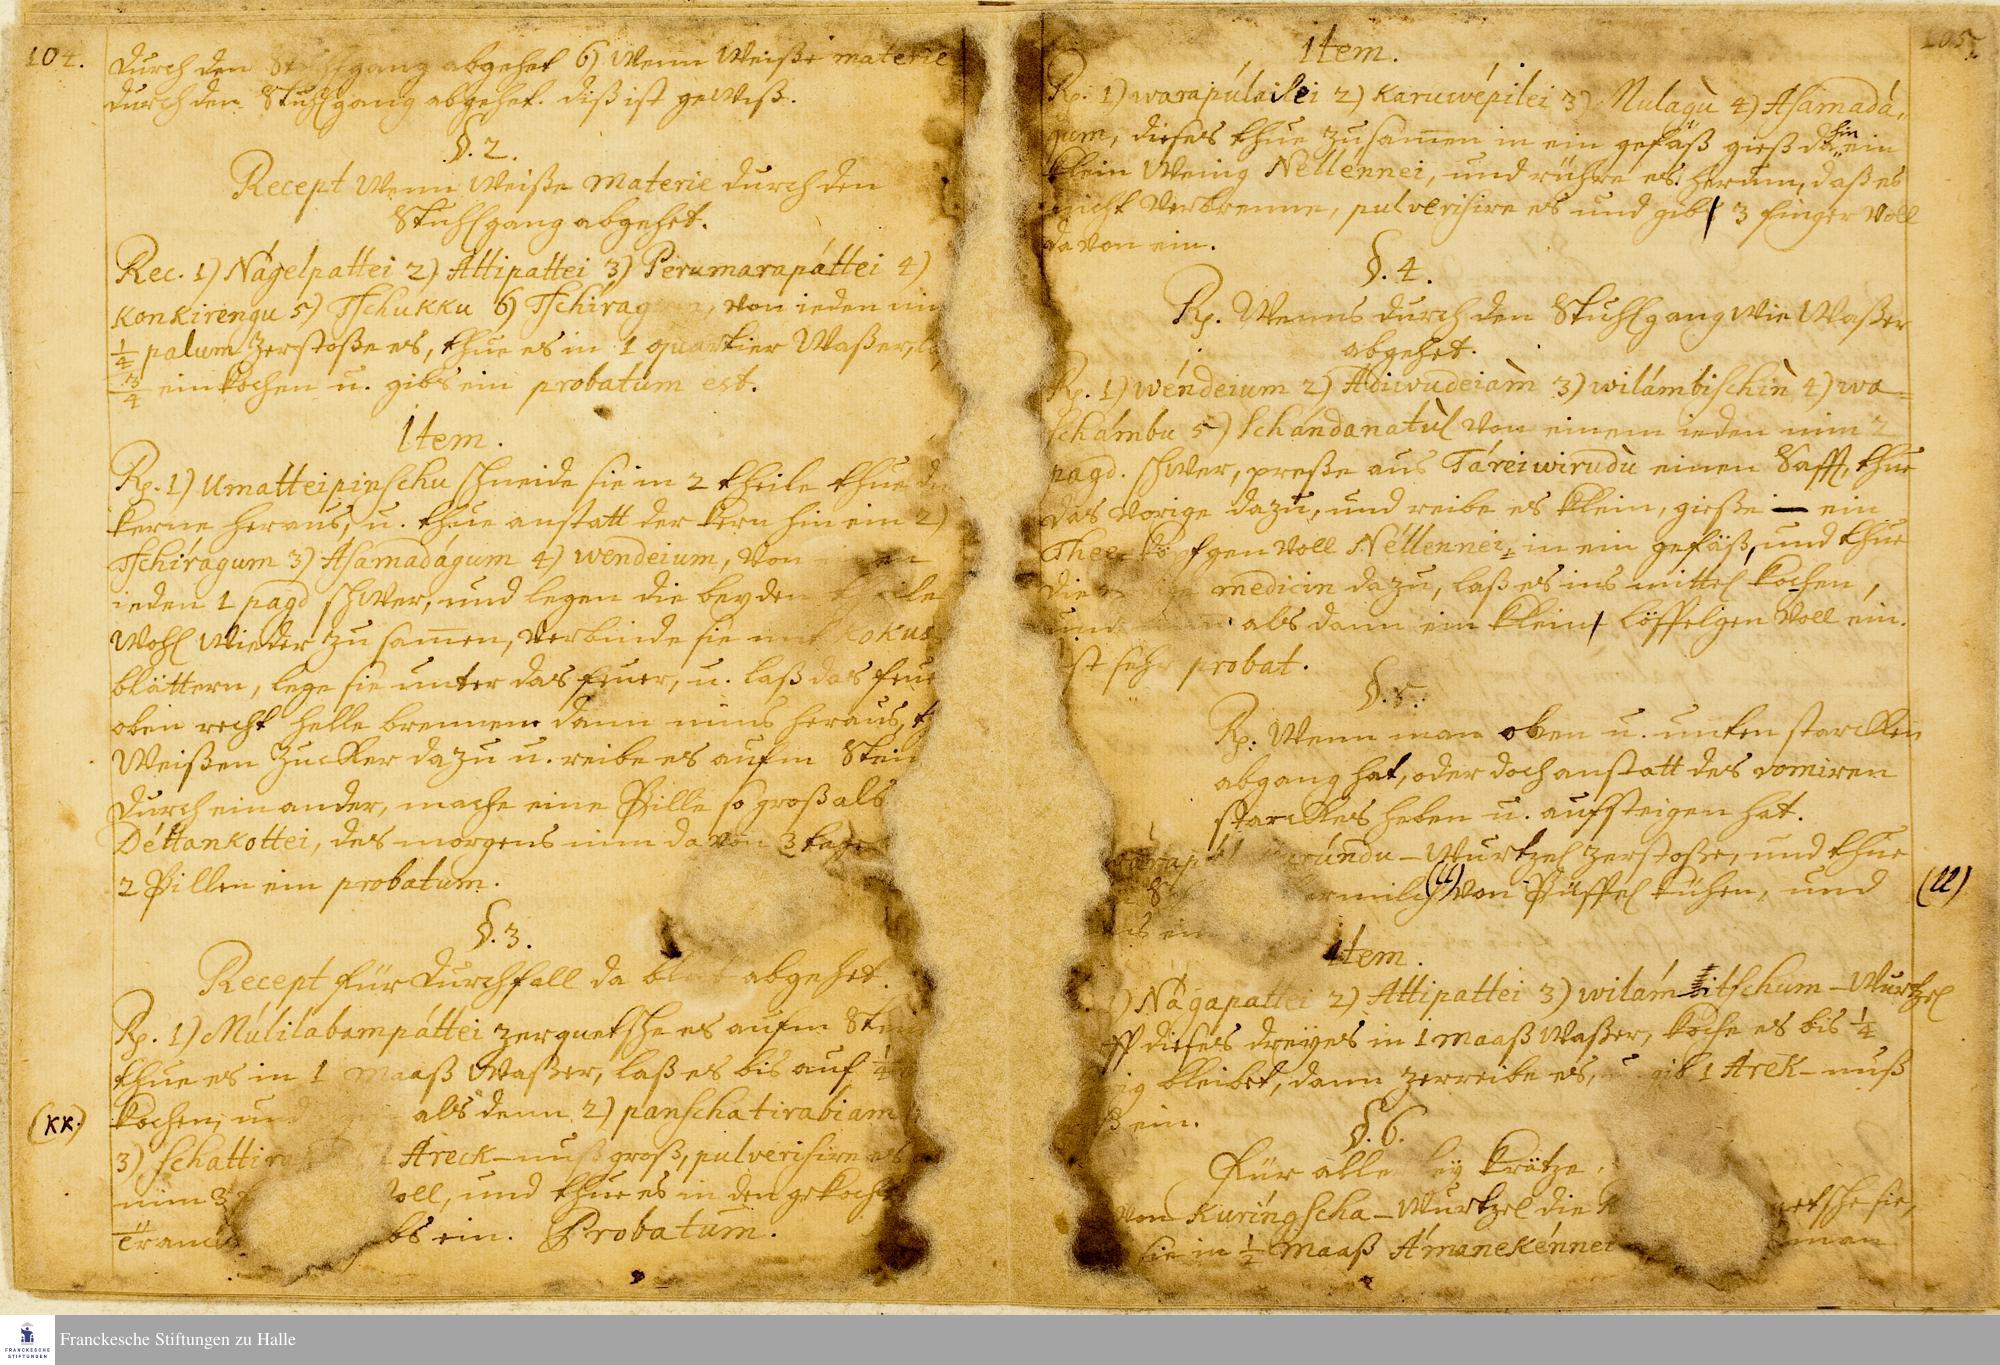 104.
durch den Stuhlgang abgehet 6) Wenn Weiße materie
durch den Stuhlgang abgehet. diß ist gewiß.
§. 2.
Recept Wenn Weiße Materie durch den
Stuhlgang abgehet.
Rec. 1) Nágelpattei 2) Attipattei 3) Perumarapáttei 4)
Konkirengu 5) Tschukku 6) Tschirag, von ieden
1/4 palum zerstoße es, thue es in 1 quartier Waßer,
3/4 einkochen u. gibs ein probatum est.
Item.
Rp. 1) Umatteipinschu schneide sie in 2 theile thue
kerne heraus, u. thue anstatt der kern hinein 2)
Tschirágum 3) Asamadágum 4) wendeium, von
ieden 1 pagd schwer, und legen die beyden
Wohl wieder zusam̄en, verbinde sie mit Kokus
blättern, lege sie unter das feuer, u. laß das feu
oben recht helle brennen dann nims heraus,
Weißen Zucker dazu u. reibe es aufm Stein
durch einander, mache eine Pille so groß als
Déttankottei, des morgens nim davon 3 tage
2 Pillen ein probatum.
§. 3.
Recept für Durchfall da blut abgehet.
Rp. 1) Múlilabampáttei zerquetsche es aufm Stein
thue es in 1 Maaß Waßer, laß es bis auf 1/4
kochen, und als denn 2) panschatirabiam
(KK.)
3) schattira Areck-nuß groß, pulverisire es
nim 3 voll, und thue es in den gekoch
ein. Probatum.
105.
Item.
Rp. 1) warapúlailei 2) Karuwépilei 3) Nulagù 4) Asamadá,,
gum, dieses thue zusam̄en in ein gefäß gieß dahin ein
klein Wenig Nellennei, und rühre es herum, daß es
nicht Verbrenne, pulverisire es und gib 3 finger Voll
davon ein.
§. 4.
Rp. Wenns durch den Stuhlgang wie Waßer
abgehet.
Rp. 1) Wéndeium 2) Adiwudeiam̀ 3) wilámbischiǹ 4) wa=
schámbu 5) Schándanatùl Von einem ieden nim 2
pagd. schwer, preße aus Táreiwirudù einen Safft, thue
das Vorige dazu, und reibe es klein, gieße ein
Thee köpfgen voll Néllennei, in ein gefäß, und thue
die medicin dazu, laß es ins mittel kochen,
und als dann ein klein löffelgen Voll ein.
ist sehr probat.
§. 5.
Rp. Wenn man oben u. unten starcken
abgang hat, oder doch anstatt des vomiren
starckes heben u. aufsteigen hat.
ründu-Wurtzel zerstoße, und thue
ermilch (ll) Von Püffel kühen, und
(ll)
Item.
1) Nágapattei 2) Attipattei 3) wilámitschum-Wurtzel
dieses dreyes in 1 Maaß Waßer, koche es bis 1/4
bleibet, dann zerreibe es, u. gib 1 Arek-nuß
ein.
§. 6.
Für alle ley krätze.
Von Kuringscha-Wurtzel die
sie in 1/2 Maaß Ámanekénnei man
Franckesche Stiftungen zu Halle
FRANCKESCHE
STIFTUNGEN